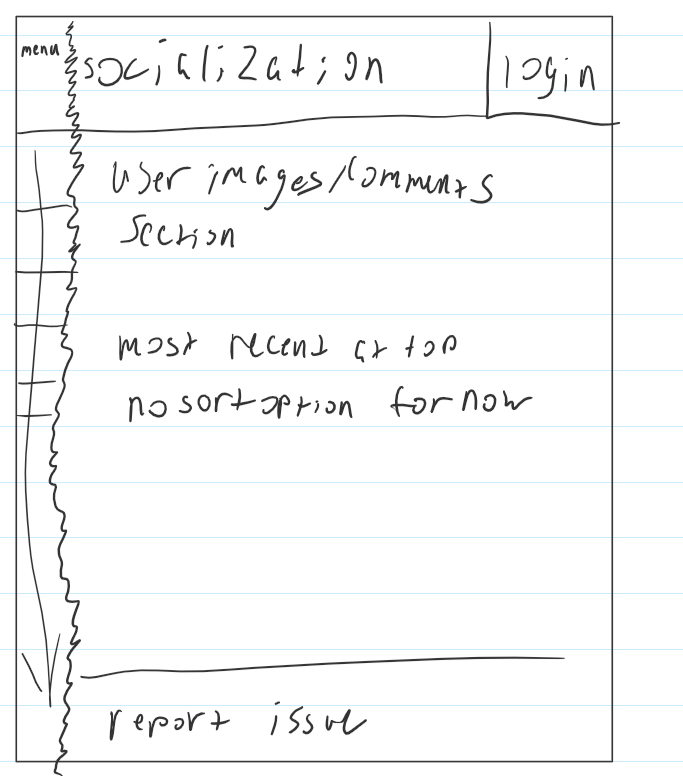 menu
socialization
login
user images/comments
section
most recent at top
no sort option for now
report issue